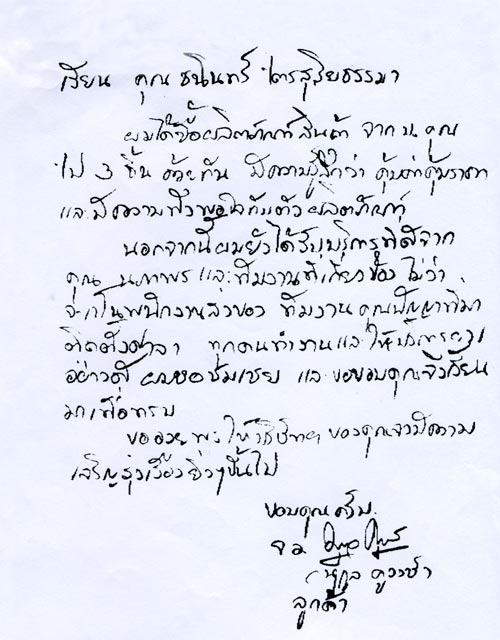 เรียน คุณ ธนินทร์ ไตรสุริยธรรมา
ผมได้ซื้อผลิตภัณฑ์สินค้า จาก บ. คุณ
ไป 3 ชิ้น ด้วยกัน มีความรู้สึกว่า คุ้มค่าคุ้มราคา
และมีความพึงพอใจกับตัวผลิตภัณฑ์
นอกจากนี้ผมยังได้รับบริการที่ดีจาก
คุณ นภาพร และทีมงานที่เกี่ยวข้อง ไม่ว่า
จะเป็นพนักงานส่งของ ทีมงานคุณปัญญาที่มา
ติดตั้งศาลา ทุกคนทำงานและให้บริการ
อย่างดี ผมขอชมเชย และขอขอบคุณจึงเรียน
มาเพื่อทราบ
ขออวยพรให้บริษัทฯ ของคุณจงมีความ
เจริญรุ่งเรืองยิ่งๆขึ้นไป
ขอบคุณครับ
ลูกค้า